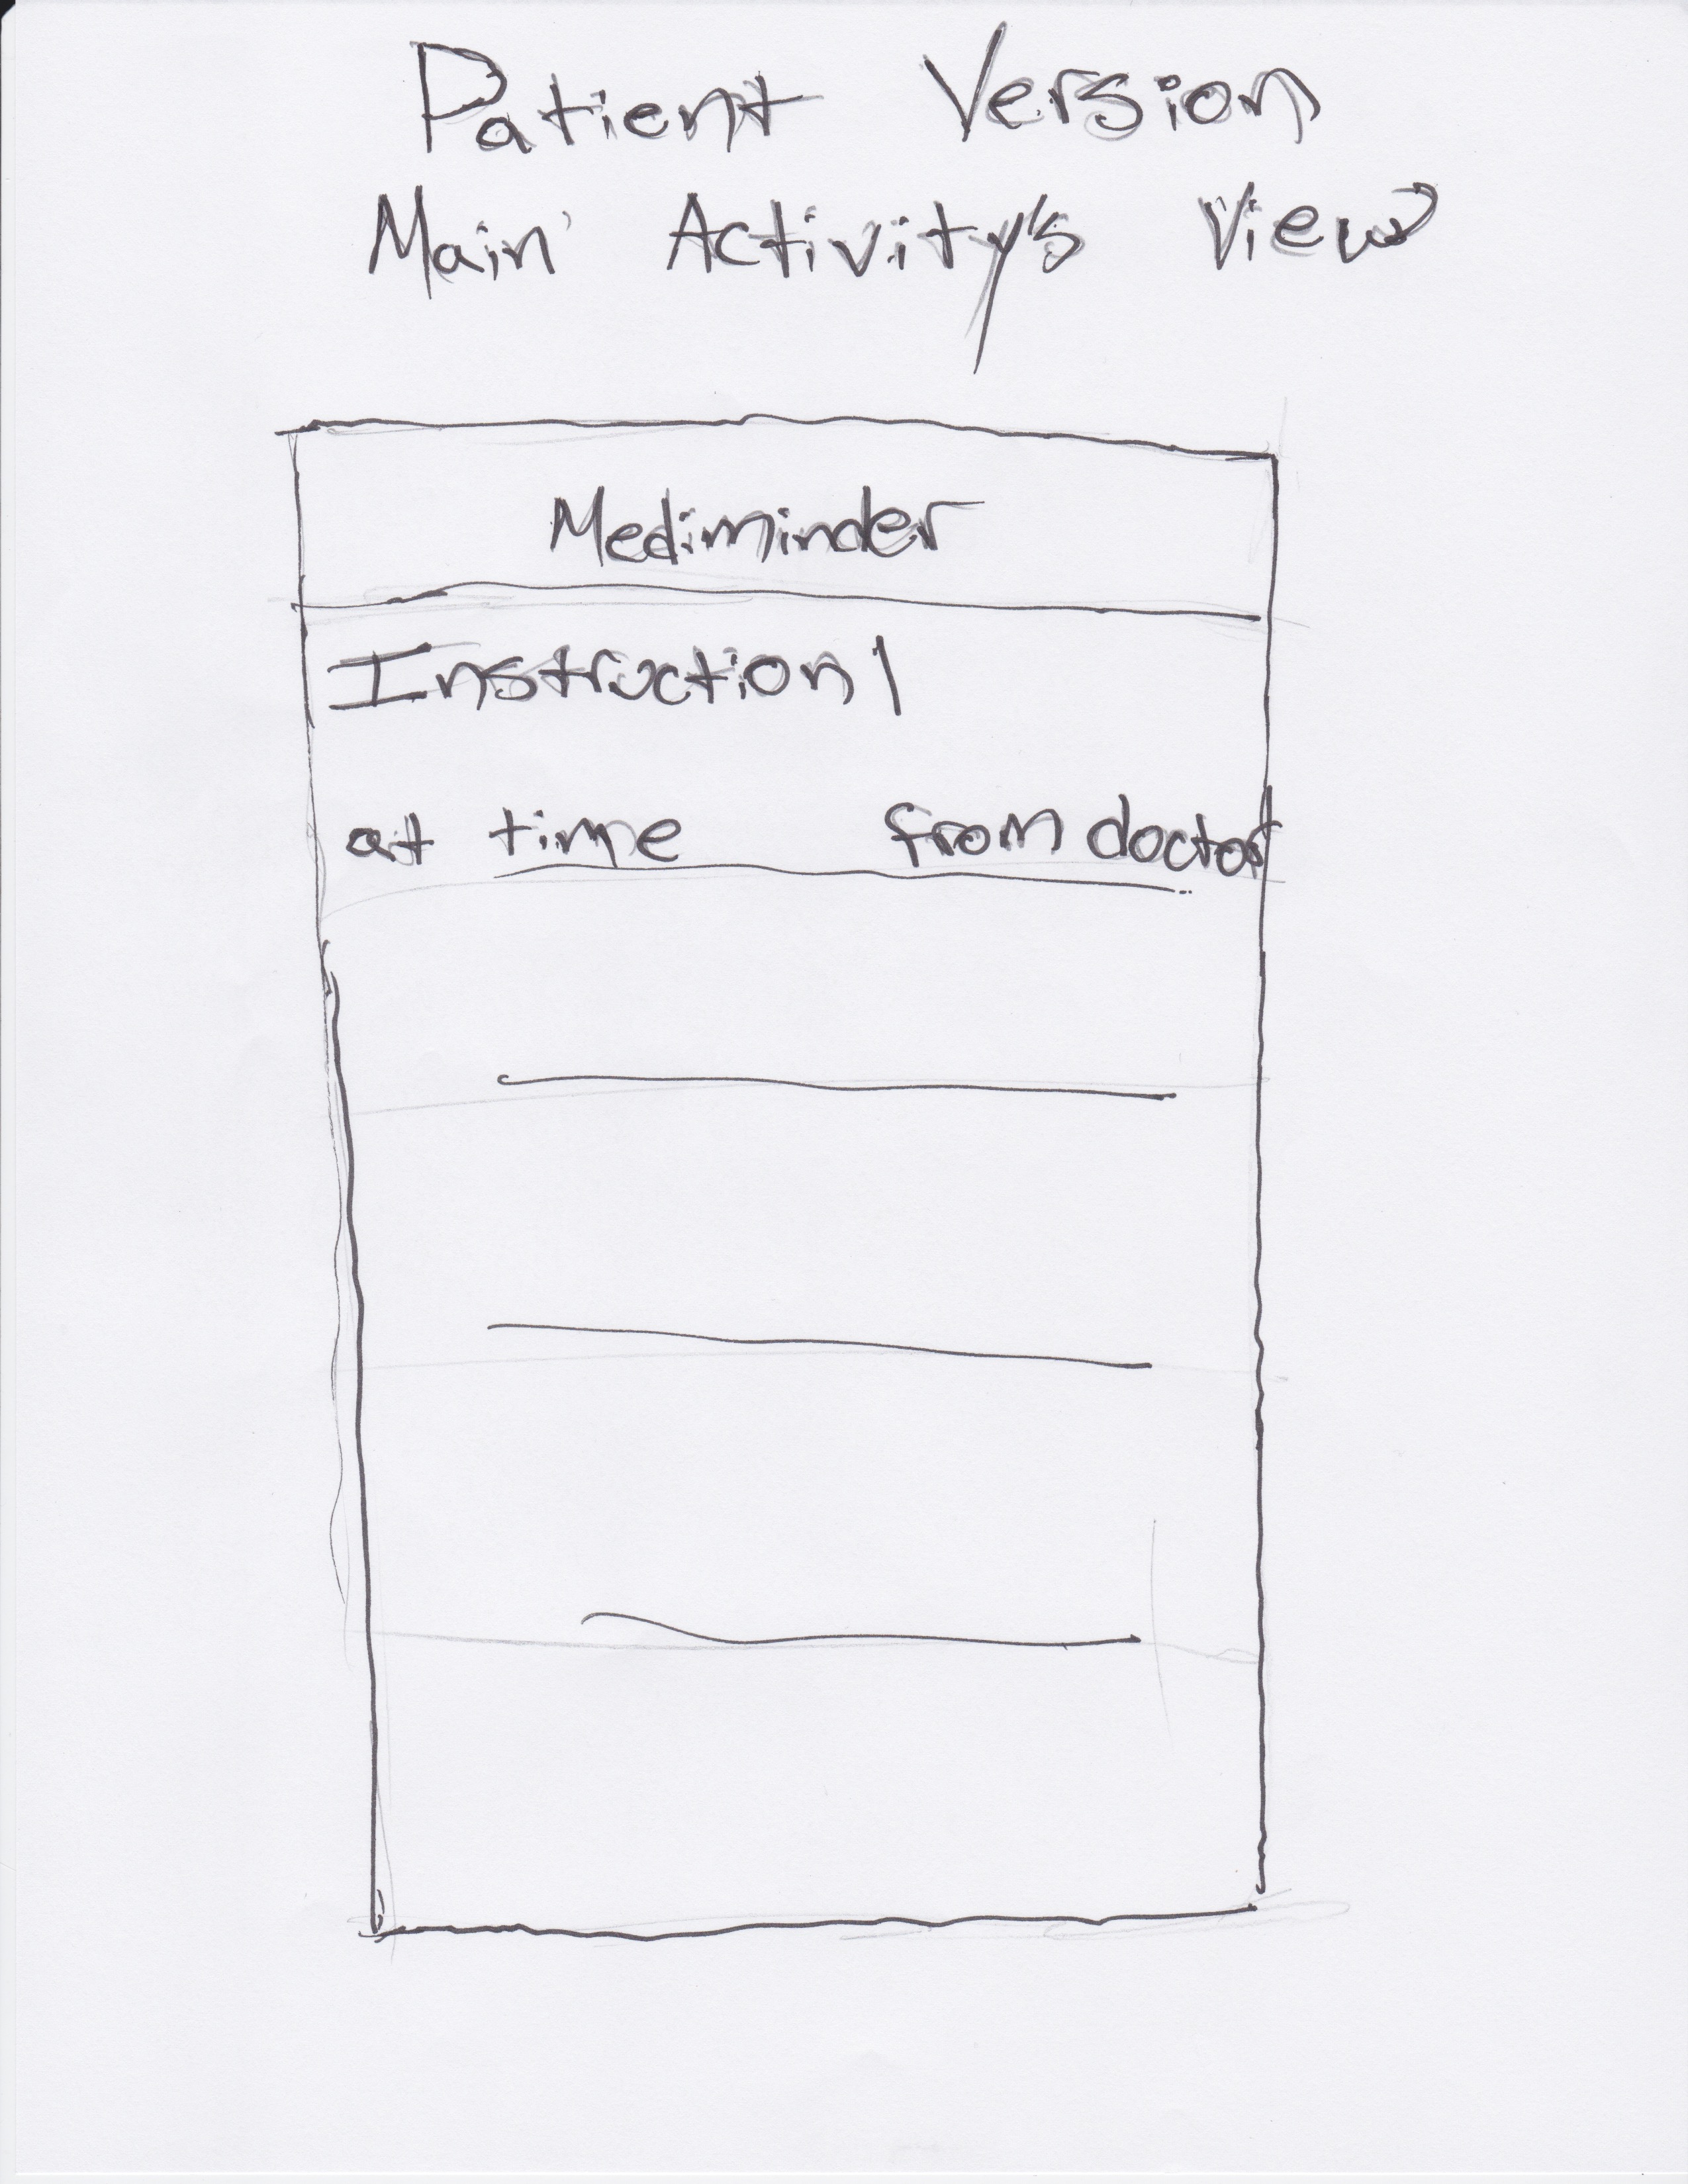 Patient Version
Main Activity's View
Mediminder
Instruction 1
at time from doctor